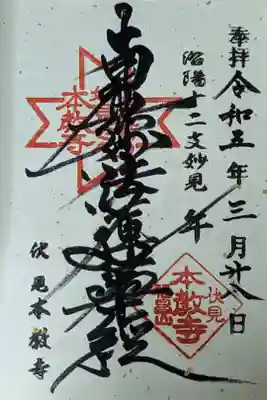 奉拝 令和五年三月廿八日
洛陽十二支妙見 午
南無妙法蓮華経
伏見本教寺
本教寺
伏見
本教寺